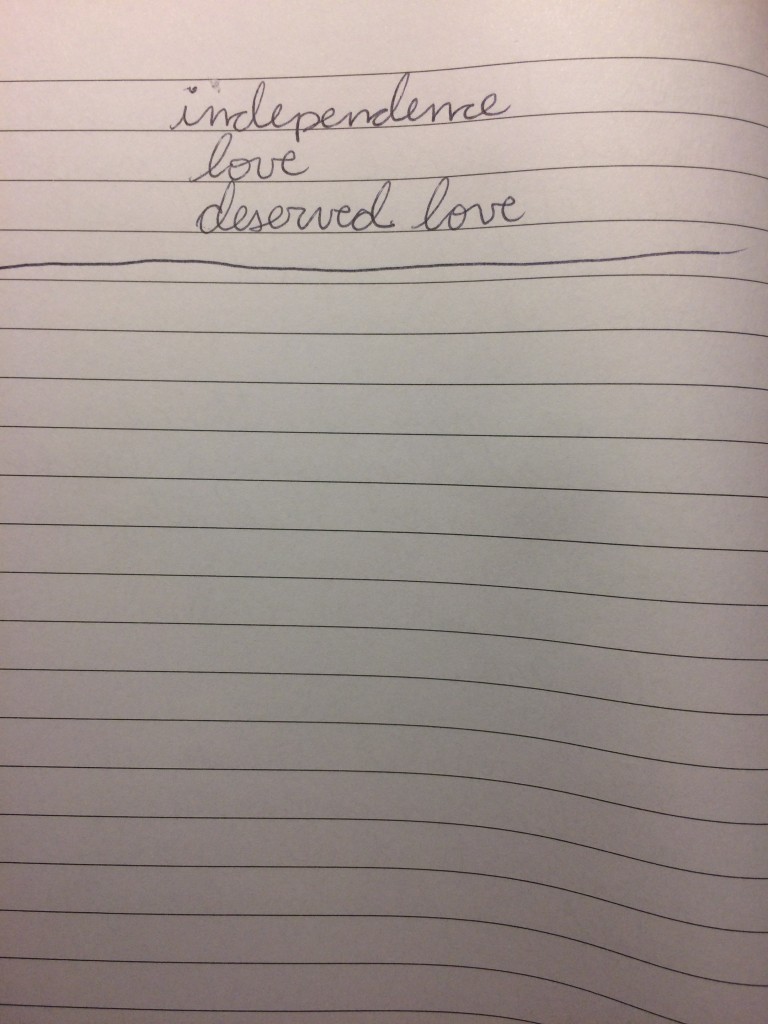 independence
love
deserved love